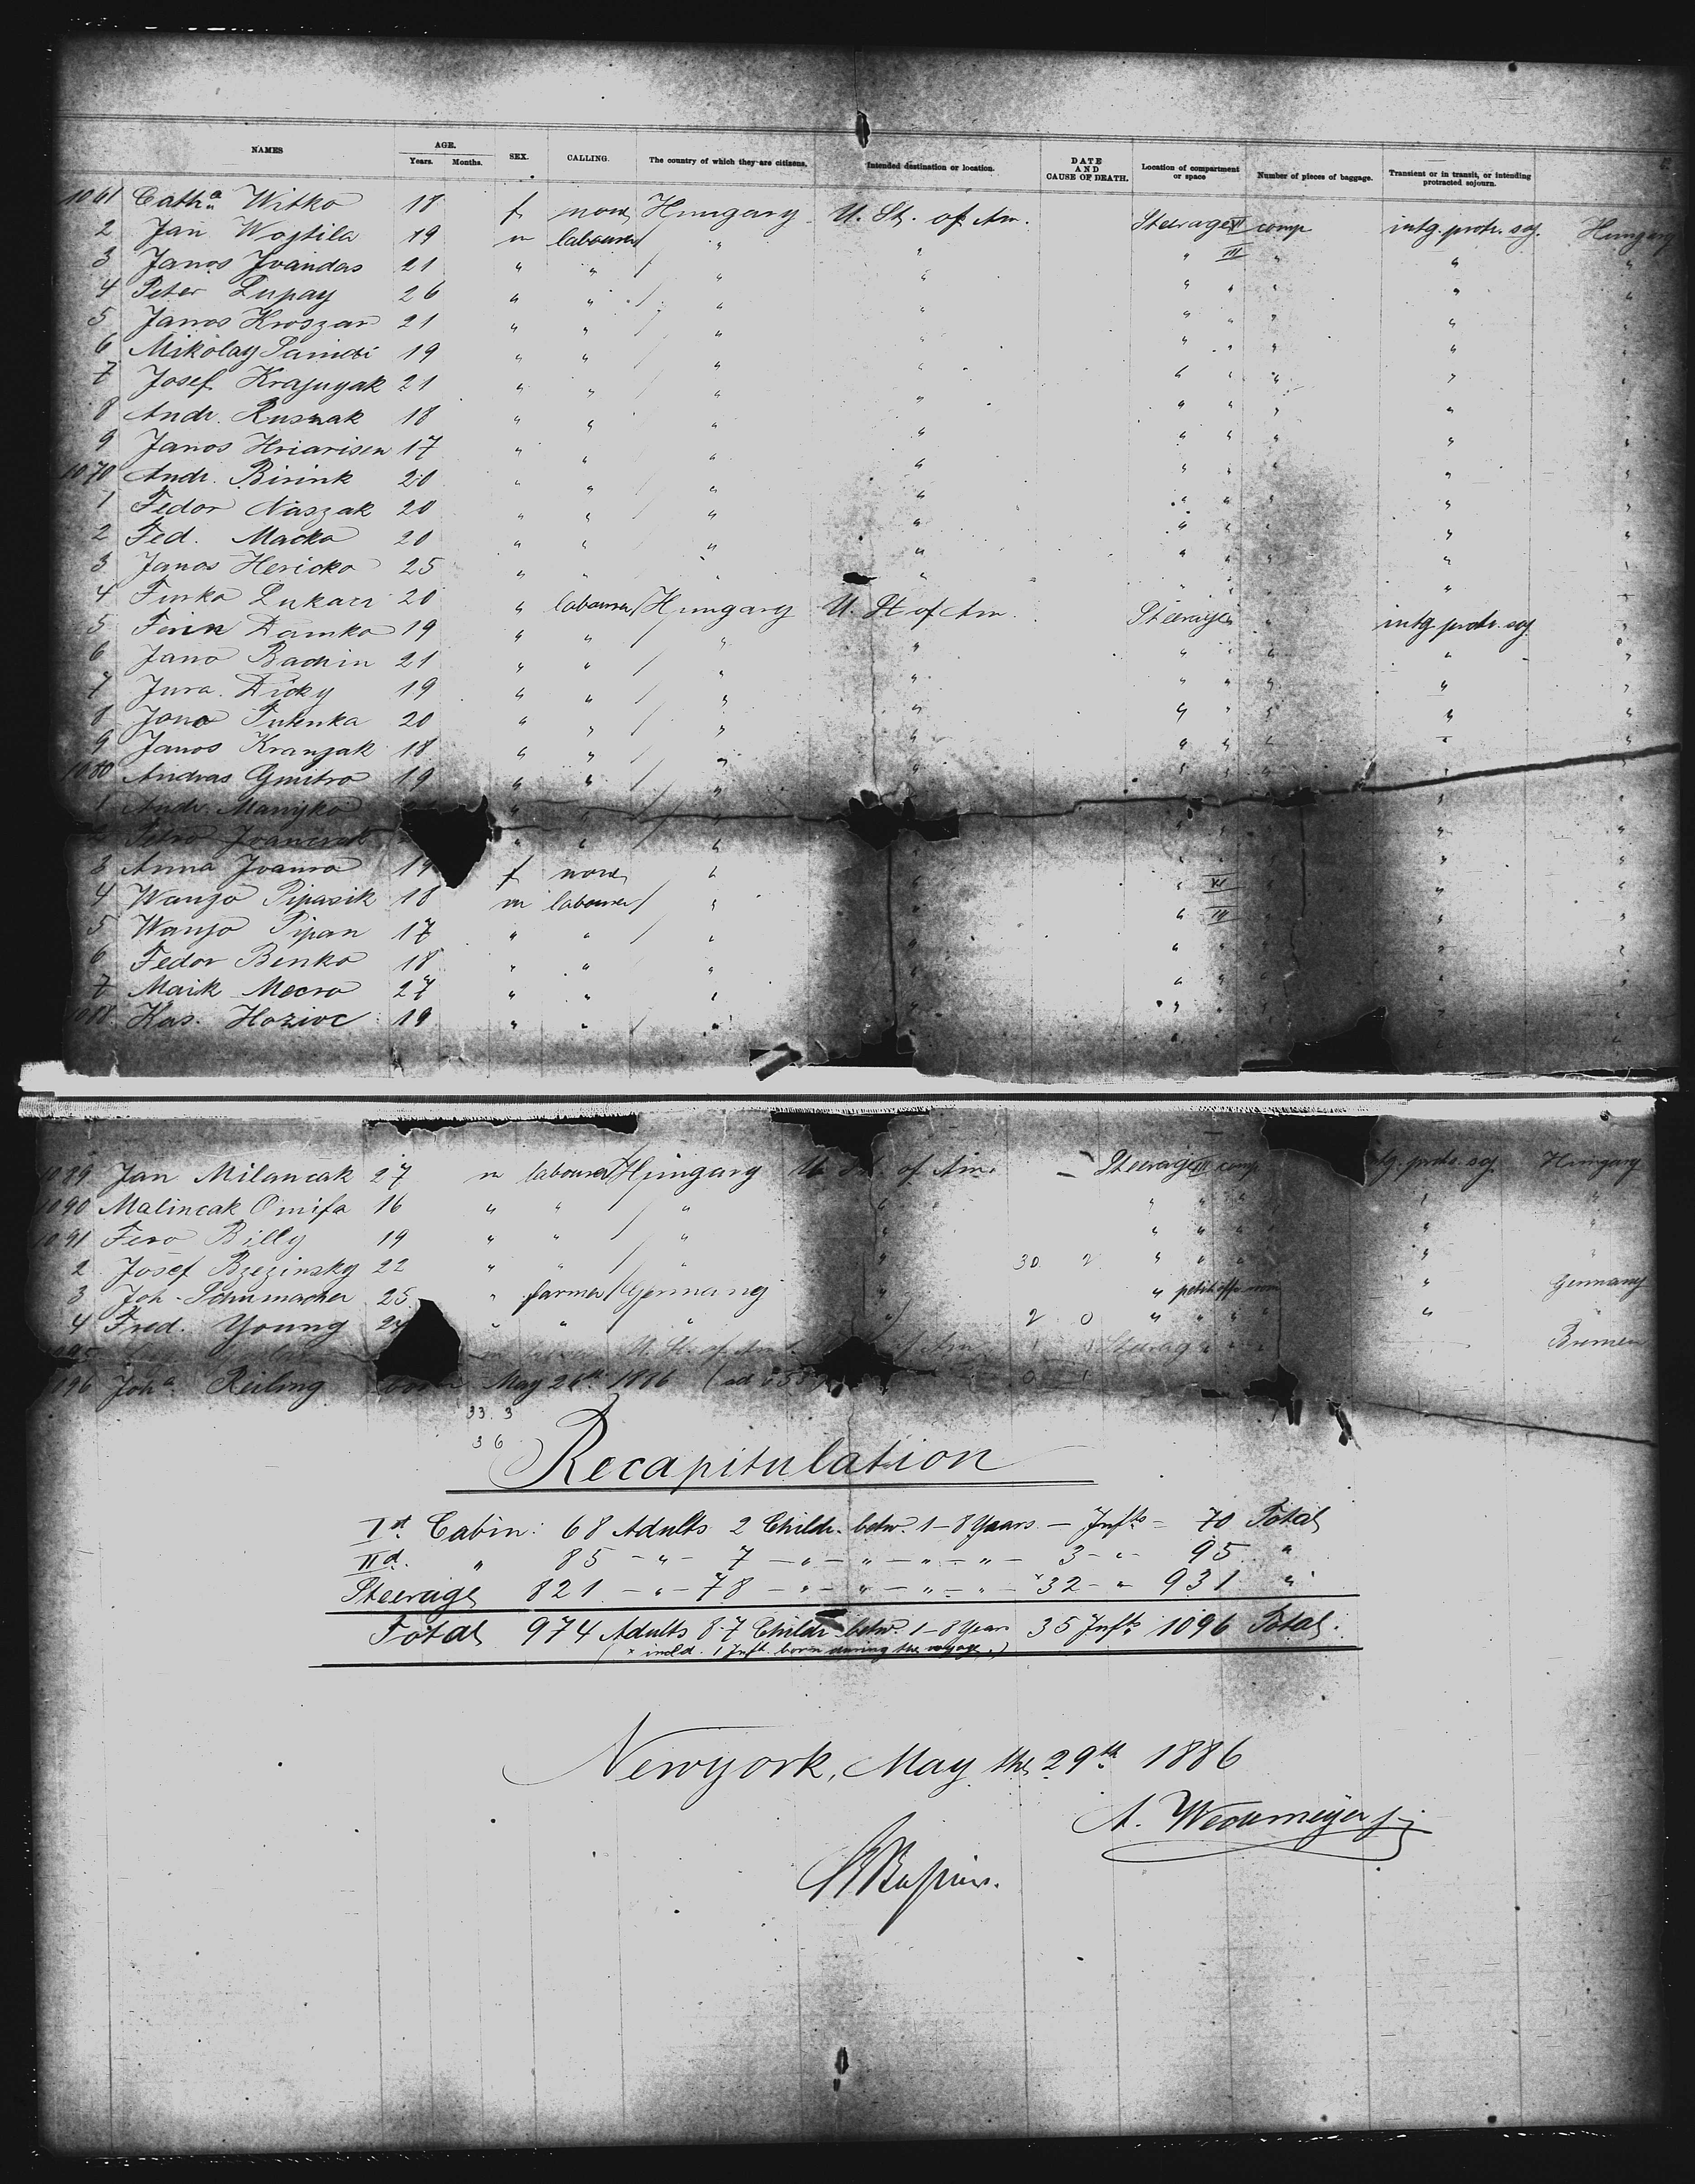 NAMES AGE. Years. Months. SEX. CALLING. The country of which they are citizens. Intended destination or location. DATE AND CAUSE OF DEATH. Location of compartment or space Number of pieces of baggage. Transient or in transit, or intending protracted sojourn.
1061 Catha Witko 18 f none Hungary U. St. of Am. Steerage II comp intg. protr. soj. Hungary
2 Jan Wojtila 19 m labourer / " " " III " " "
3 Janos Ivandas 21 " " / " " " " " " "
4 Peter Lupay 26 " " / " " " " " " "
5 Janos Hroszar 21 " " / " " " " " " "
6 Mikolay 19 " " / " " " " " " "
7 Josef Krajnyak 21 " " / " " " " " " "
8 Andr. Rusnak 18 " " / " " " " " " "
9 Janos Hriarisen 17 " " / " " " " " " "
1070 Andr. Birink 20 " " / " " " " " " "
1 Fedor Naszak 20 " " / " " " " " " "
2 Fed. Macko 20 " " / " " " " " " "
3 Janos Hericko 25 " " " " " " " " "
4 Lukacz 20 " labourer / Hungary U. St of Am. Steerage " " intg protr. soj. "
5 Damko 19 " " / " " " " " " "
6 Jano Bachin 21 " " / " " " " " " "
7 Jura Dicky 19 " " / " " " " " " "
8 Jano 20 " " / " " " " " " "
9 Janos Kranjak 18 " " / " " " " " " "
1080 Andras Gmitro 19 " " / " " " " " " "
1 Andr. Manyko " " / " " " " " " "
Petro " " / " " " " " " "
3 Anna Ivanno 19 f none " " " XI " " "
4 Wanjo Pipasik 18 m labourer / " " " III " " "
5 Wanjo Pipan 17 " " / " " " " " " "
6 Fedor Benko 18 " " " " " " " " "
7 Maik Mecso 27 " " " " " " " " "
1088 Has. Hozioc 19 " " " " " " " " "
1089 Jan Milancak 27 m labourer / Hungary U. St. of Am. Steerage III comp. protr. soj Hungary
1090 Malincak Omifa 16 " " / " " " " " " "
1091 Fero Billy 19 " " / " " " " " " "
2 Josef Brzezinsky 22 " " / " " 30 2 " " " "
3 Joh. Schumacher 25 " farmer / Germany " " " Germany
4 Fred. Young " " " " 2 0 " " " " Bremen
1095 m U. St. of Am. of Am. 1 Steerage " "
1096 Joha Reiling born May 26th 1886 0 1
33. 3
36
Recapitulation
Ist Cabin: 68 Adults 2 Childr. betw. 1-8 Years — Infts = 70 Total
IId. " 85 — " — 7 — " — " — " — " — 3 — " — 95 "
Steerage 821 — " — 78 — " — " — " — " — x32 — " 931 "
Total 974 Adults 87 Childr betw. 1-8 Years 35 Infts 1096 Total.
(x incld. 1 Inft. born during the voyage.)
Newyork, May the 29th 1886
A. Wedemeyer